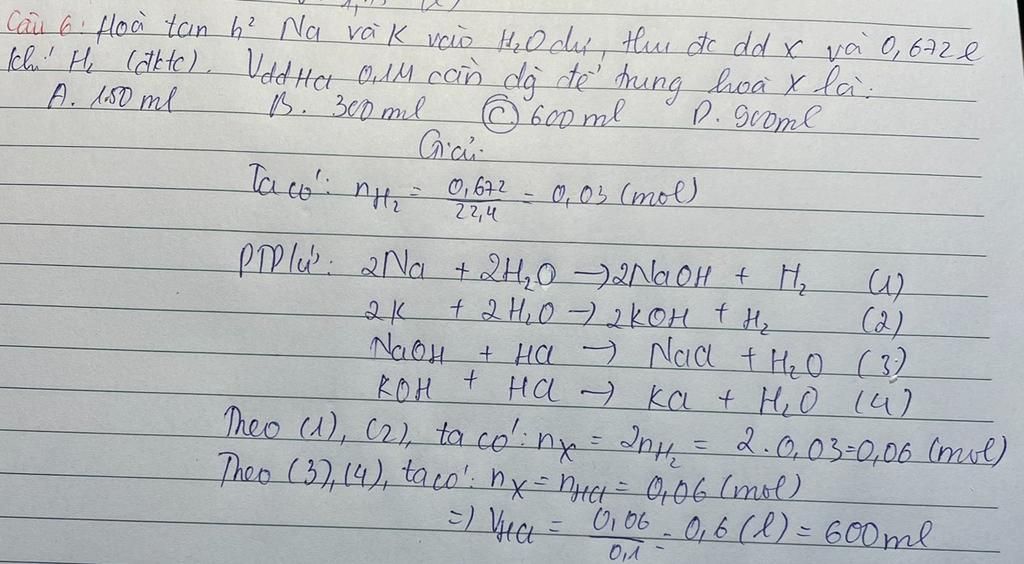 Câu 6: Hoà tan h² Na và K vào H₂O dư, thu đc dd X và 0,672 l
khí H₂ (đktc). VddHCl 0,1M cần dg để trung hoà X là:
A. 150 ml B. 300 ml C. 600 ml D. 900ml
Giải:
Ta có: nH₂ = 0,672/22,4 = 0,03 (mol)
PTP/ứ: 2Na + 2H₂O → 2NaOH + H₂ (1)
2K + 2H₂O → 2KOH + H₂ (2)
NaOH + HCl → NaCl + H₂O (3)
KOH + HCl → KCl + H₂O (4)
Theo (1), (2), ta có: nX = 2nH₂ = 2.0,03=0,06 (mol)
Theo (3), (4), ta có: nX = nHCl = 0,06 (mol)
=) VHCl = 0,06/0,1 = 0,6 (l) = 600ml